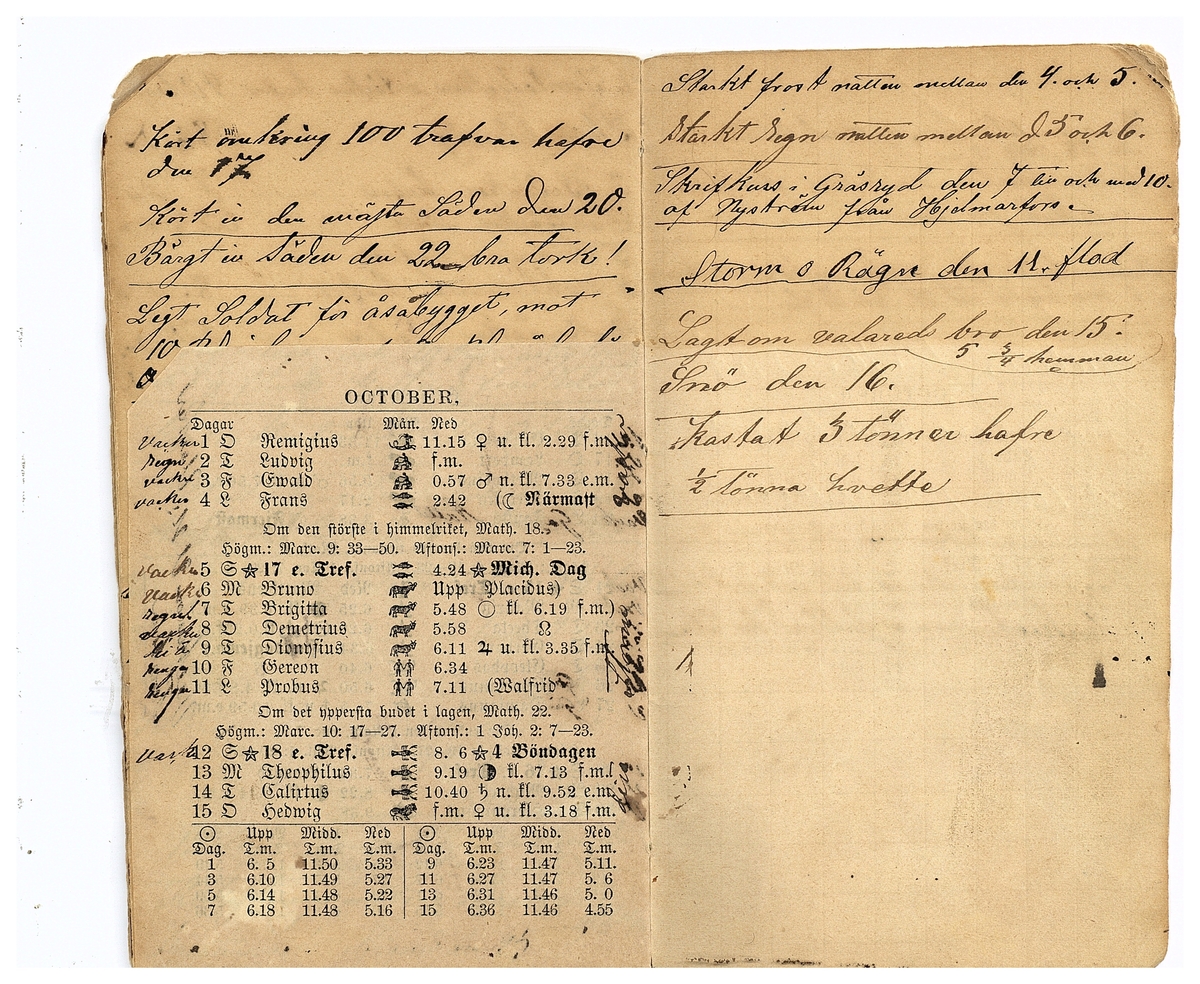 Kört omkring 100 trafvar hafre
den 17
Kört in den mästa Säden den 20.
Bärgt in Säden den 22 bra tork!
Legt Soldat för åsabygget, mot
10
OCTOBER.
Dagar Mån. Ned
vacker 1 O Remigius 11.15 ♀ u. kl. 2.29 f.m.
regn 2 T Ludvig f.m.
vacker 3 F Ewald 0.57 ♂ n. kl. 7.33 e.m.
vacker 4 L Frans 2.42 (☾ Närmast
Om den störste i himmelriket, Math. 18.
Högm.: Marc. 9: 33—50. Aftons.: Marc. 7: 1—23.
vacker 5 S ☆ 17 e. Tref. 4.24 ☆ Mich. Dag
vacker 6 M Bruno Upp Placidus)
regn 7 T Brigitta 5.48 kl. 6.19 f.m.)
vacker 8 O Demetrius 5.58 ☊
9 T Dionysius 6.11 ♃ u. kl. 3.35 f.m
10 F Gereon 6.34
11 L Probus 7.11 (Walfrid
Om det yppersta budet i lagen, Math. 22.
Högm.: Marc. 10: 17—27. Aftons.: 1 Joh. 2: 7—23.
12 S ☆ 18 e. Tref. 8. 6 ☆ 4 Böndagen
13 M Theophilus 9.19 kl. 7.13 f.m.
14 T Calixtus 10.40 ♄ n. kl. 9.52 e.m.
15 O Hedwig f.m. ♀ u. kl. 3.18 f.m.
☉ Upp Midd. Ned ☉ Upp Midd. Ned
Dag. T.m. T.m. T.m. Dag. T.m. T.m. T.m.
1 6. 5 11.50 5.33 9 6.23 11.47 5.11.
3 6.10 11.49 5.27 11 6.27 11.47 5. 6
5 6.14 11.48 5.22 13 6.31 11.46 5. 0
7 6.18 11.48 5.16 15 6.36 11.46 4.55
Starkt frost natten mellan den 4. och 5.
Starkt Regn natten mellan d 5 och 6.
Skrifkurs i Gräsryd den 7 till och med 10.
af Nyström från Hjelmarfors.
Storm o Rägn den 11. flod
Lagt om valared bro den 15.
5 3/4 hemman
Snö den 16.
Kastat 3 tönner hafre
½ tönna hvette